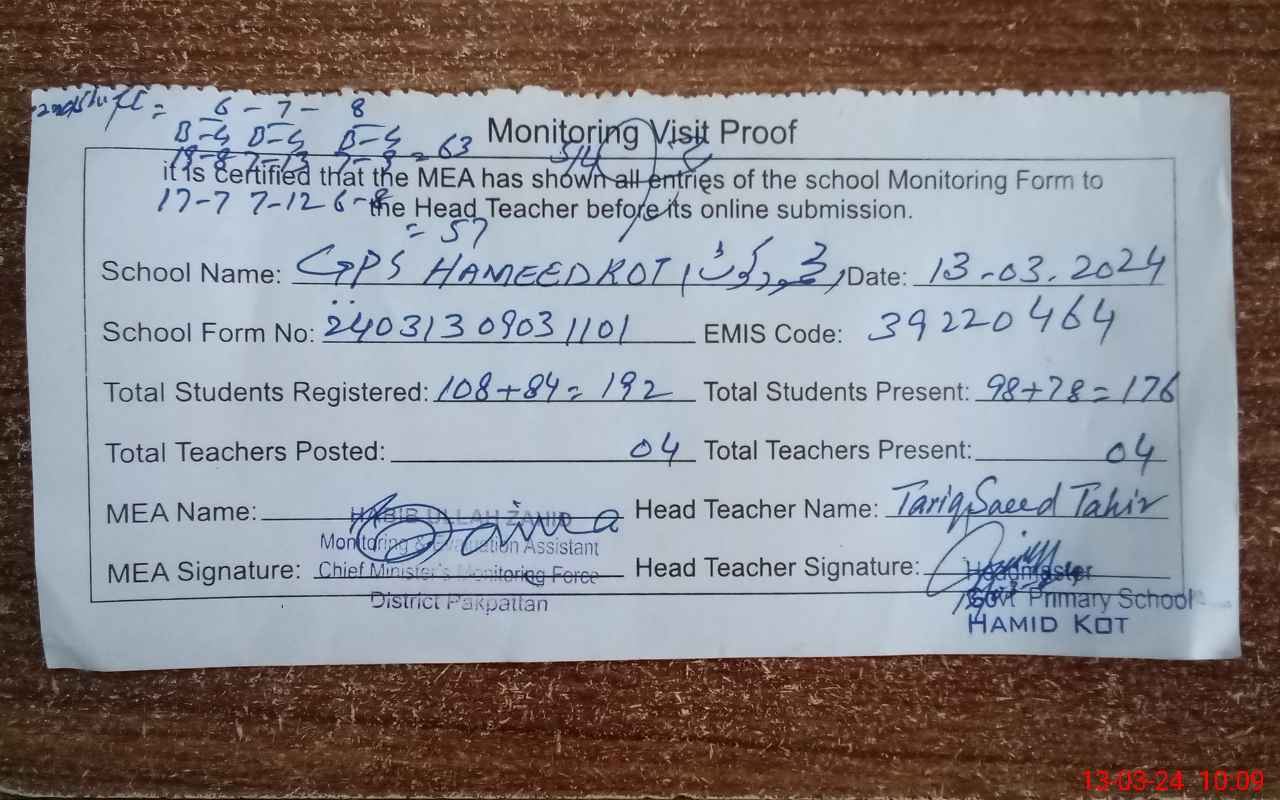 2nd shift = 6 - 7 - 8
B-G B-G B-G
18-8 7-13 7-9 = 63
17-7 7-12 6-8
= 57
Monitoring Visit Proof
it is certified that the MEA has shown all entries of the school Monitoring Form to
the Head Teacher before its online submission.
School Name: GPS HAMEEDKOT Date: 13-03-2024
School Form No: 24031309031101 EMIS Code: 39220464
Total Students Registered: 108+84=192 Total Students Present: 98+78=176
Total Teachers Posted: 04 Total Teachers Present: 04
MEA Name: HABIB ULLAH ZAHID Head Teacher Name: Tariq Saeed Tahir
Monitoring & Evaluation Assistant
MEA Signature: Chief Minister's Monitoring Force Head Teacher Signature: Headmaster
District Pakpattan Govt Primary School
HAMID KOT
13-03-24 10:09